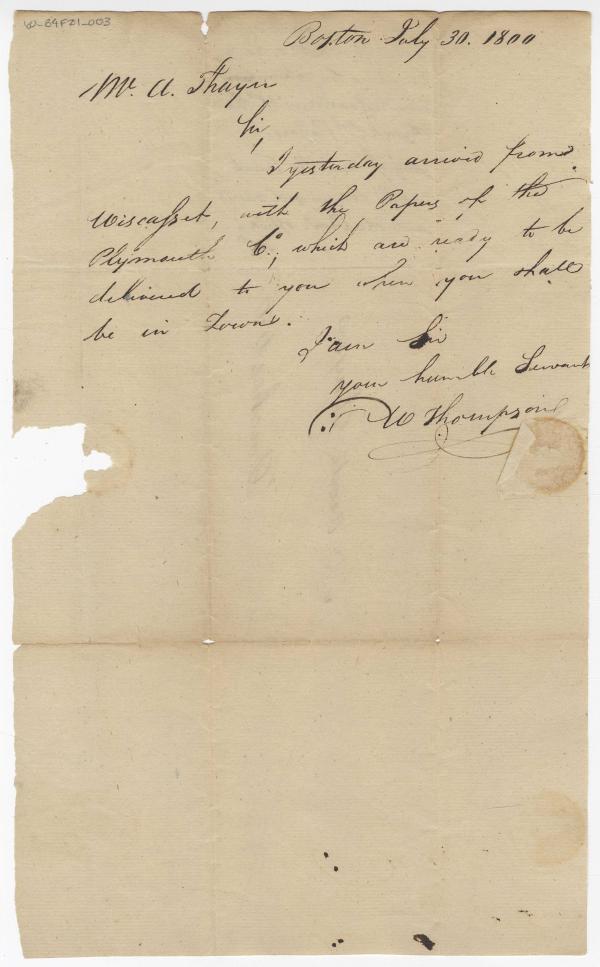 W-B4F21_003
Boston July 30. 1800
Mr. A. Thayer
Sir,
I yesterday arrived from
Wiscasset, with the Papers of the
Plymouth Co., which are ready to be
delivered to you when you shall
be in Town.
I am Sir
your humble Servant
W Thompson